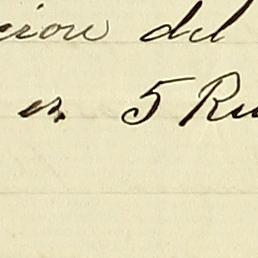 cion del
en 5 Ru